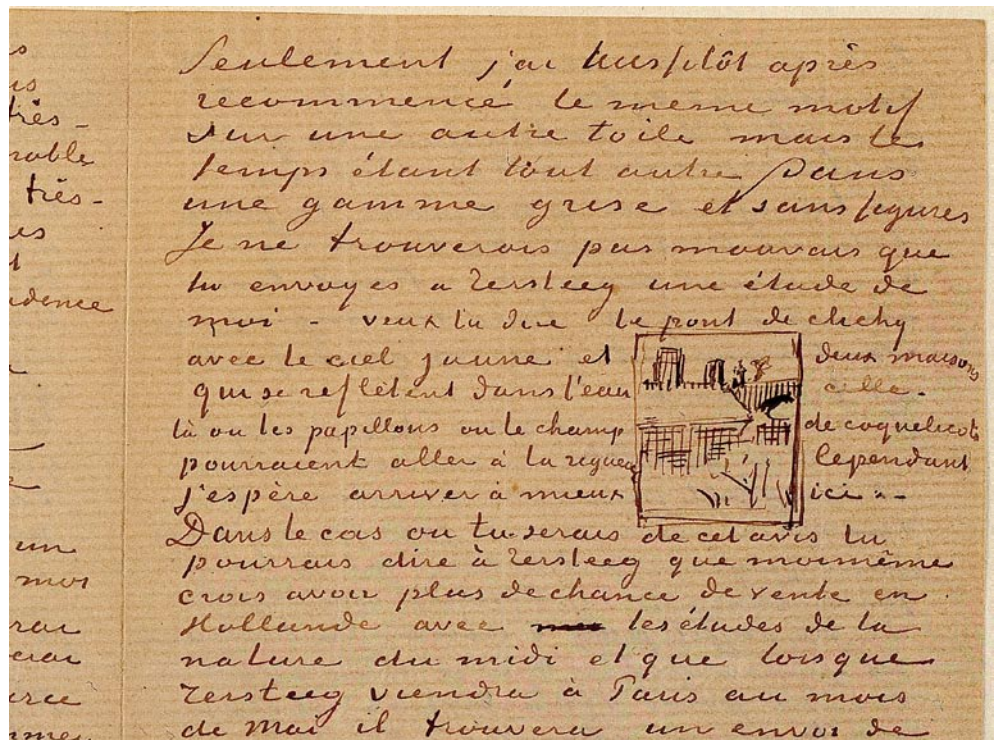 très -
très -
idence
un
moi
rai
Seulement j'ai aussitôt après
recommencé le meme motif
sur une autre toile mais le
temps étant tout autre dans
une gamme grise et sans figures
Je ne trouverais pas mauvais que
tu envoyes a Tersteeg une étude de
moi - veux tu dire le pont de clichy
avec le ciel jaune et deux maisons
qui se reflètent dans l'eau celle-
là ou les papillons ou le champ de coquelicots
pourraient aller à la rigueur Cependant
j'espère arriver à mieux ici. -
Dans le cas ou tu serais de cet avis tu
pourrais dire à Tersteeg que moimême
crois avoir plus de chance de vente en
Hollande avec les études de la
nature du midi et que lorsque
Tersteeg viendra à Paris au mois
de Mai il trouvera un envoi de